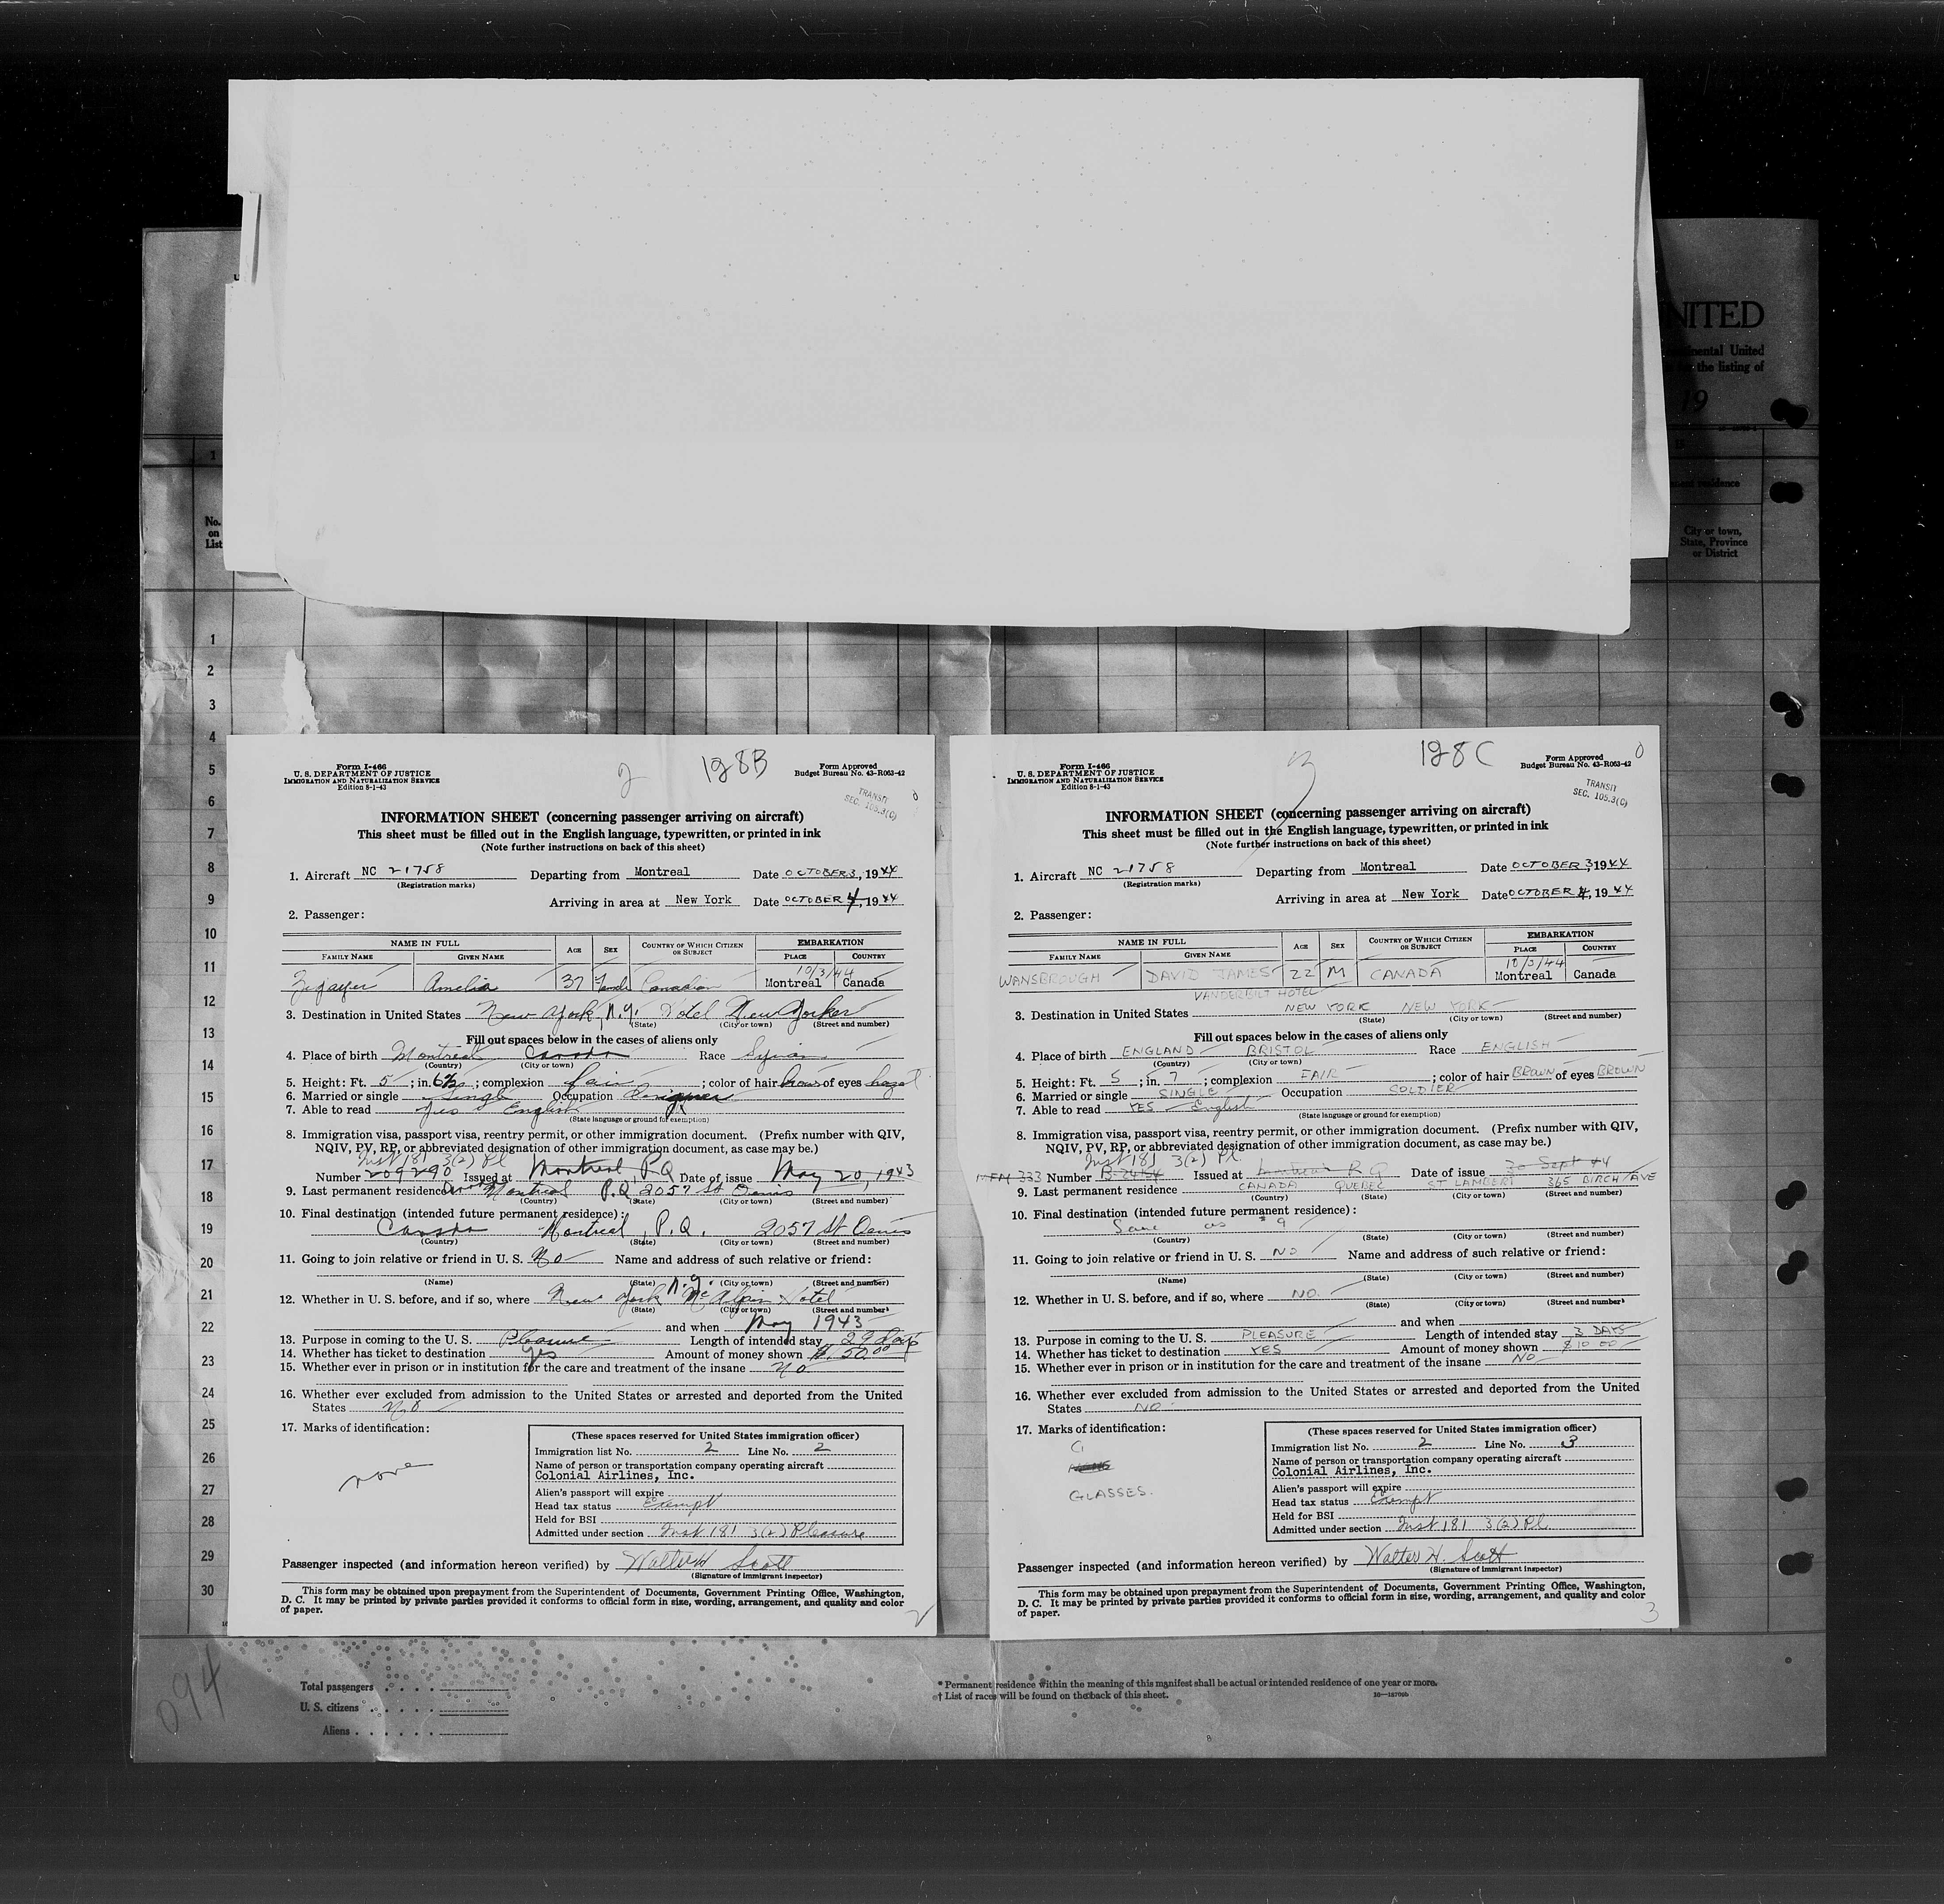 NITED
inental United
the listing of
19
residence
No.
on
List
City or town,
State, Province
or District
1
1
2
3
4
5
6
7
8
9
10
11
12
13
14
15
16
17
18
19
20
21
22
23
24
25
26
27
28
29
30
Form I-466
U. S. DEPARTMENT OF JUSTICE
IMMIGRATION AND NATURALIZATION SERVICE
Edition 8-1-43
2
128B
Form Approved
Budget Bureau No. 43-R063-42
TRANSIT
SEC. 105.3(C)
INFORMATION SHEET (concerning passenger arriving on aircraft)
This sheet must be filled out in the English language, typewritten, or printed in ink
(Note further instructions on back of this sheet)
1. Aircraft NC 21758 Departing from Montreal Date OCTOBER 3, 1944
(Registration marks)
Arriving in area at New York Date OCTOBER 4, 1944
2. Passenger:
NAME IN FULL AGE SEX COUNTRY OF WHICH CITIZEN OR SUBJECT EMBARKATION
FAMILY NAME GIVEN NAME PLACE COUNTRY
10/3/44
Amelia 37 Canadian Montreal Canada
3. Destination in United States New York, N.Y. Hotel New Yorker
(State) (City or town) (Street and number)
Fill out spaces below in the cases of aliens only
4. Place of birth Montreal Canada Race Syrian
(Country) (City or town)
5. Height: Ft. 5; in. 6½; complexion fair; color of hair brown of eyes hazel
6. Married or single Single Occupation designer
7. Able to read Yes English
(State language or ground for exemption)
8. Immigration visa, passport visa, reentry permit, or other immigration document. (Prefix number with QIV,
NQIV, PV, RP, or abbreviated designation of other immigration document, as case may be.)
Inst 181 3(2) Pl
Number 209290 Issued at Montreal, P.Q Date of issue May 20, 1943
9. Last permanent residence Montreal P.Q 2057 St Denis
(Country) (State) (City or town) (Street and number)
10. Final destination (intended future permanent residence):
Canada Montreal, P.Q. 2057 St. Denis
(Country) (State) (City or town) (Street and number)
11. Going to join relative or friend in U. S. No Name and address of such relative or friend:
(Name) (State) (City or town) (Street and number)
12. Whether in U. S. before, and if so, where New York N.Y. McAlpin Hotel
(State) (City or town) (Street and number)
and when May 1943
13. Purpose in coming to the U. S. Pleasure Length of intended stay 29 days
14. Whether has ticket to destination Yes Amount of money shown $ 50.00
15. Whether ever in prison or in institution for the care and treatment of the insane No
16. Whether ever excluded from admission to the United States or arrested and deported from the United
States No
17. Marks of identification:
none
(These spaces reserved for United States immigration officer)
Immigration list No. 2 Line No. 2
Name of person or transportation company operating aircraft
Colonial Airlines, Inc.
Alien's passport will expire
Head tax status Exempt
Held for BSI
Admitted under section Inst 181 3(2) Pleasure
Passenger inspected (and information hereon verified) by Walter H Scott
(Signature of Immigrant Inspector)
This form may be obtained upon prepayment from the Superintendent of Documents, Government Printing Office, Washington,
D. C. It may be printed by private parties provided it conforms to official form in size, wording, arrangement, and quality and color
of paper.
2
Form I-466
U. S. DEPARTMENT OF JUSTICE
IMMIGRATION AND NATURALIZATION SERVICE
Edition 8-1-43
3
128C
Form Approved
Budget Bureau No. 43-R063-42
TRANSIT
SEC. 105.3(C)
INFORMATION SHEET (concerning passenger arriving on aircraft)
This sheet must be filled out in the English language, typewritten, or printed in ink
(Note further instructions on back of this sheet)
1. Aircraft NC 21758 Departing from Montreal Date OCTOBER 3, 1944
(Registration marks)
Arriving in area at New York Date OCTOBER 4, 1944
2. Passenger:
NAME IN FULL AGE SEX COUNTRY OF WHICH CITIZEN OR SUBJECT EMBARKATION
FAMILY NAME GIVEN NAME PLACE COUNTRY
10/3/44
WANSBROUGH DAVID JAMES 22 M CANADA Montreal Canada
VANDERBILT HOTEL
3. Destination in United States NEW YORK NEW YORK
(State) (City or town) (Street and number)
Fill out spaces below in the cases of aliens only
4. Place of birth ENGLAND BRISTOL Race ENGLISH
(Country) (City or town)
5. Height: Ft. 5; in. 7; complexion FAIR; color of hair BROWN of eyes BROWN
6. Married or single SINGLE Occupation SOLDIER
7. Able to read YES English
(State language or ground for exemption)
8. Immigration visa, passport visa, reentry permit, or other immigration document. (Prefix number with QIV,
NQIV, PV, RP, or abbreviated designation of other immigration document, as case may be.)
Inst 181 3(2) Pl.
333 Number B-2454 Issued at Montreal P Q Date of issue 30 Sept 44
9. Last permanent residence CANADA QUEBEC ST LAMBERT 365 BIRCH AVE
(Country) (State) (City or town) (Street and number)
10. Final destination (intended future permanent residence):
Same as #9
(Country) (State) (City or town) (Street and number)
11. Going to join relative or friend in U. S. NO Name and address of such relative or friend:
(Name) (State) (City or town) (Street and number)
12. Whether in U. S. before, and if so, where NO.
(State) (City or town) (Street and number)
and when
13. Purpose in coming to the U. S. PLEASURE Length of intended stay 3 DAYS
14. Whether has ticket to destination YES Amount of money shown $10 00
15. Whether ever in prison or in institution for the care and treatment of the insane NO
16. Whether ever excluded from admission to the United States or arrested and deported from the United
States NO
17. Marks of identification:
GLASSES.
(These spaces reserved for United States immigration officer)
Immigration list No. 2 Line No. 3
Name of person or transportation company operating aircraft
Colonial Airlines, Inc.
Alien's passport will expire
Head tax status Exempt
Held for BSI
Admitted under section Inst 181 3(2) Pl.
Passenger inspected (and information hereon verified) by Walter H. Scott
(Signature of Immigrant Inspector)
This form may be obtained upon prepayment from the Superintendent of Documents, Government Printing Office, Washington,
D. C. It may be printed by private parties provided it conforms to official form in size, wording, arrangement, and quality and color
of paper.
3
094
Total passengers
U. S. citizens
Aliens
* Permanent residence within the meaning of this manifest shall be actual or intended residence of one year or more.
† List of races will be found on the back of this sheet.